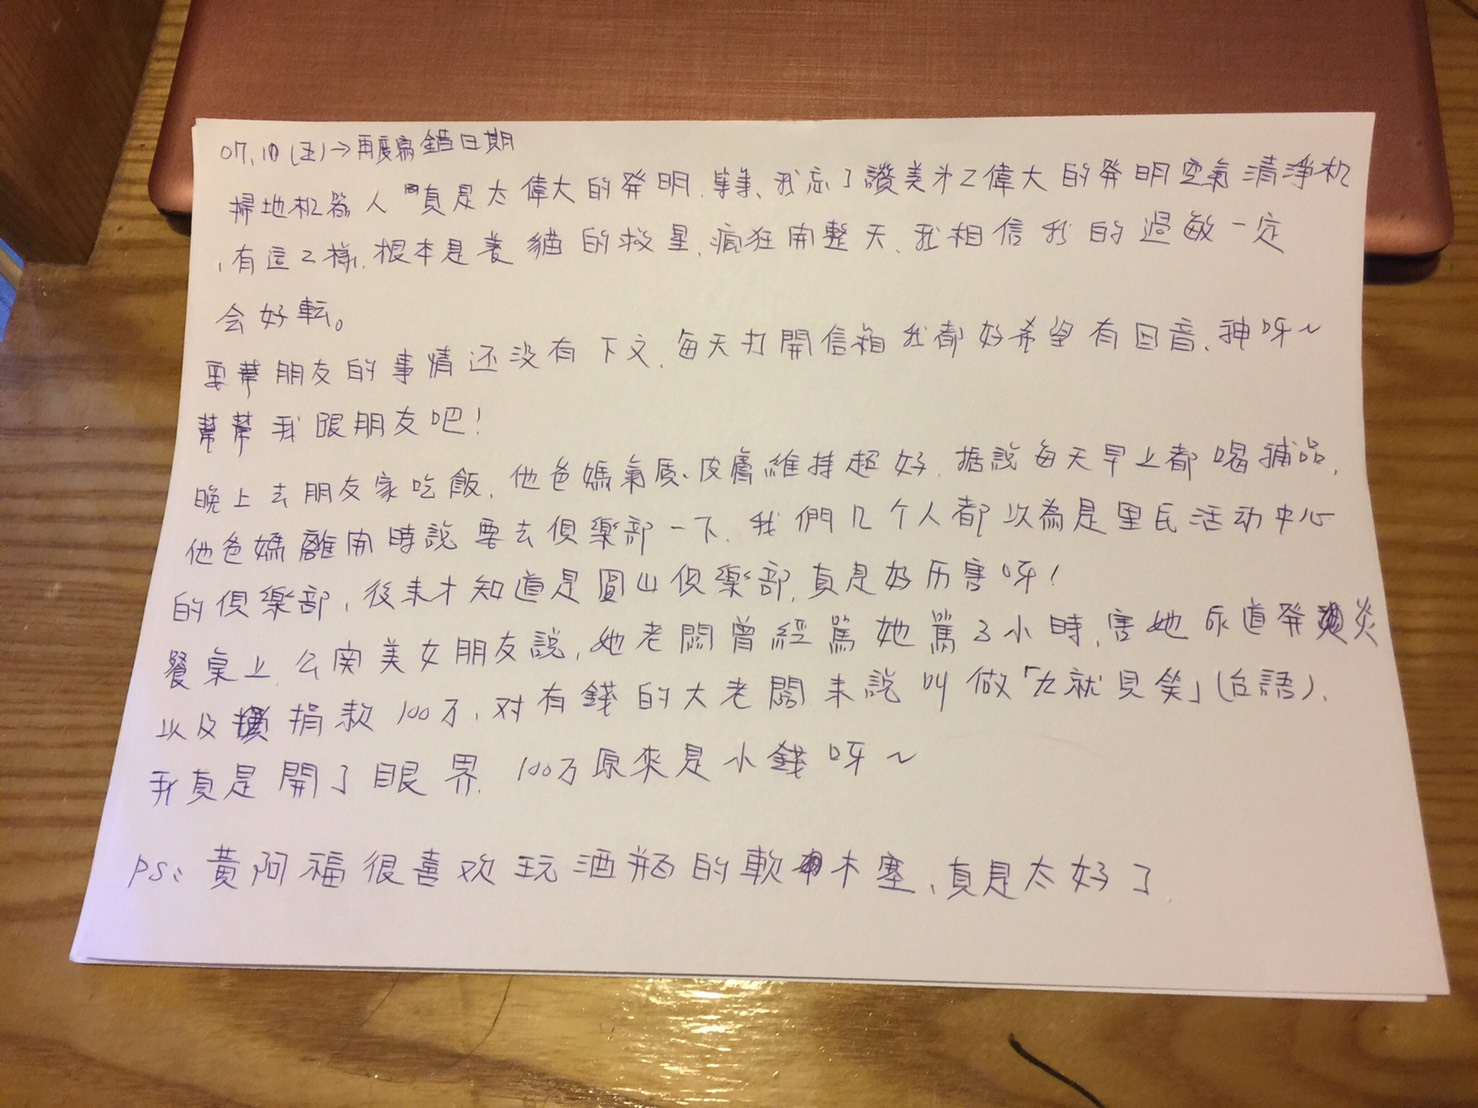 07,10(五)→再度寫錯日期
掃地机器人真是太偉大的発明,等等、我忘了讚美第2偉大的発明空氣清淨机
,有這2樣,根本是養貓的救星,瘋狂開整天,我相信我的過敏一定
会好転。
要幫朋友的事情还没有下文,每天打開信箱我都好希望有回音、神呀~
幫幫我跟朋友吧!
晚上去朋友家吃飯,他爸媽氣质、皮膚維持超好,据說每天早上都喝補品,
他爸媽離開時說要去俱楽部一下,我們几个人都以為是里民活动中心
的俱楽部,後来才知道是圓山俱楽部,真是好历害呀!
餐桌上,公関美女朋友説,她老闆曾經罵她罵3小時,害她尿道発炎
以及捐款100万,对有錢的大老闆来説叫做「九就見笑」(台語),
我真是開了眼界,100万原來是小錢呀~
PS:黃阿福很喜欢玩酒瓶的軟木塞,真是太好了.